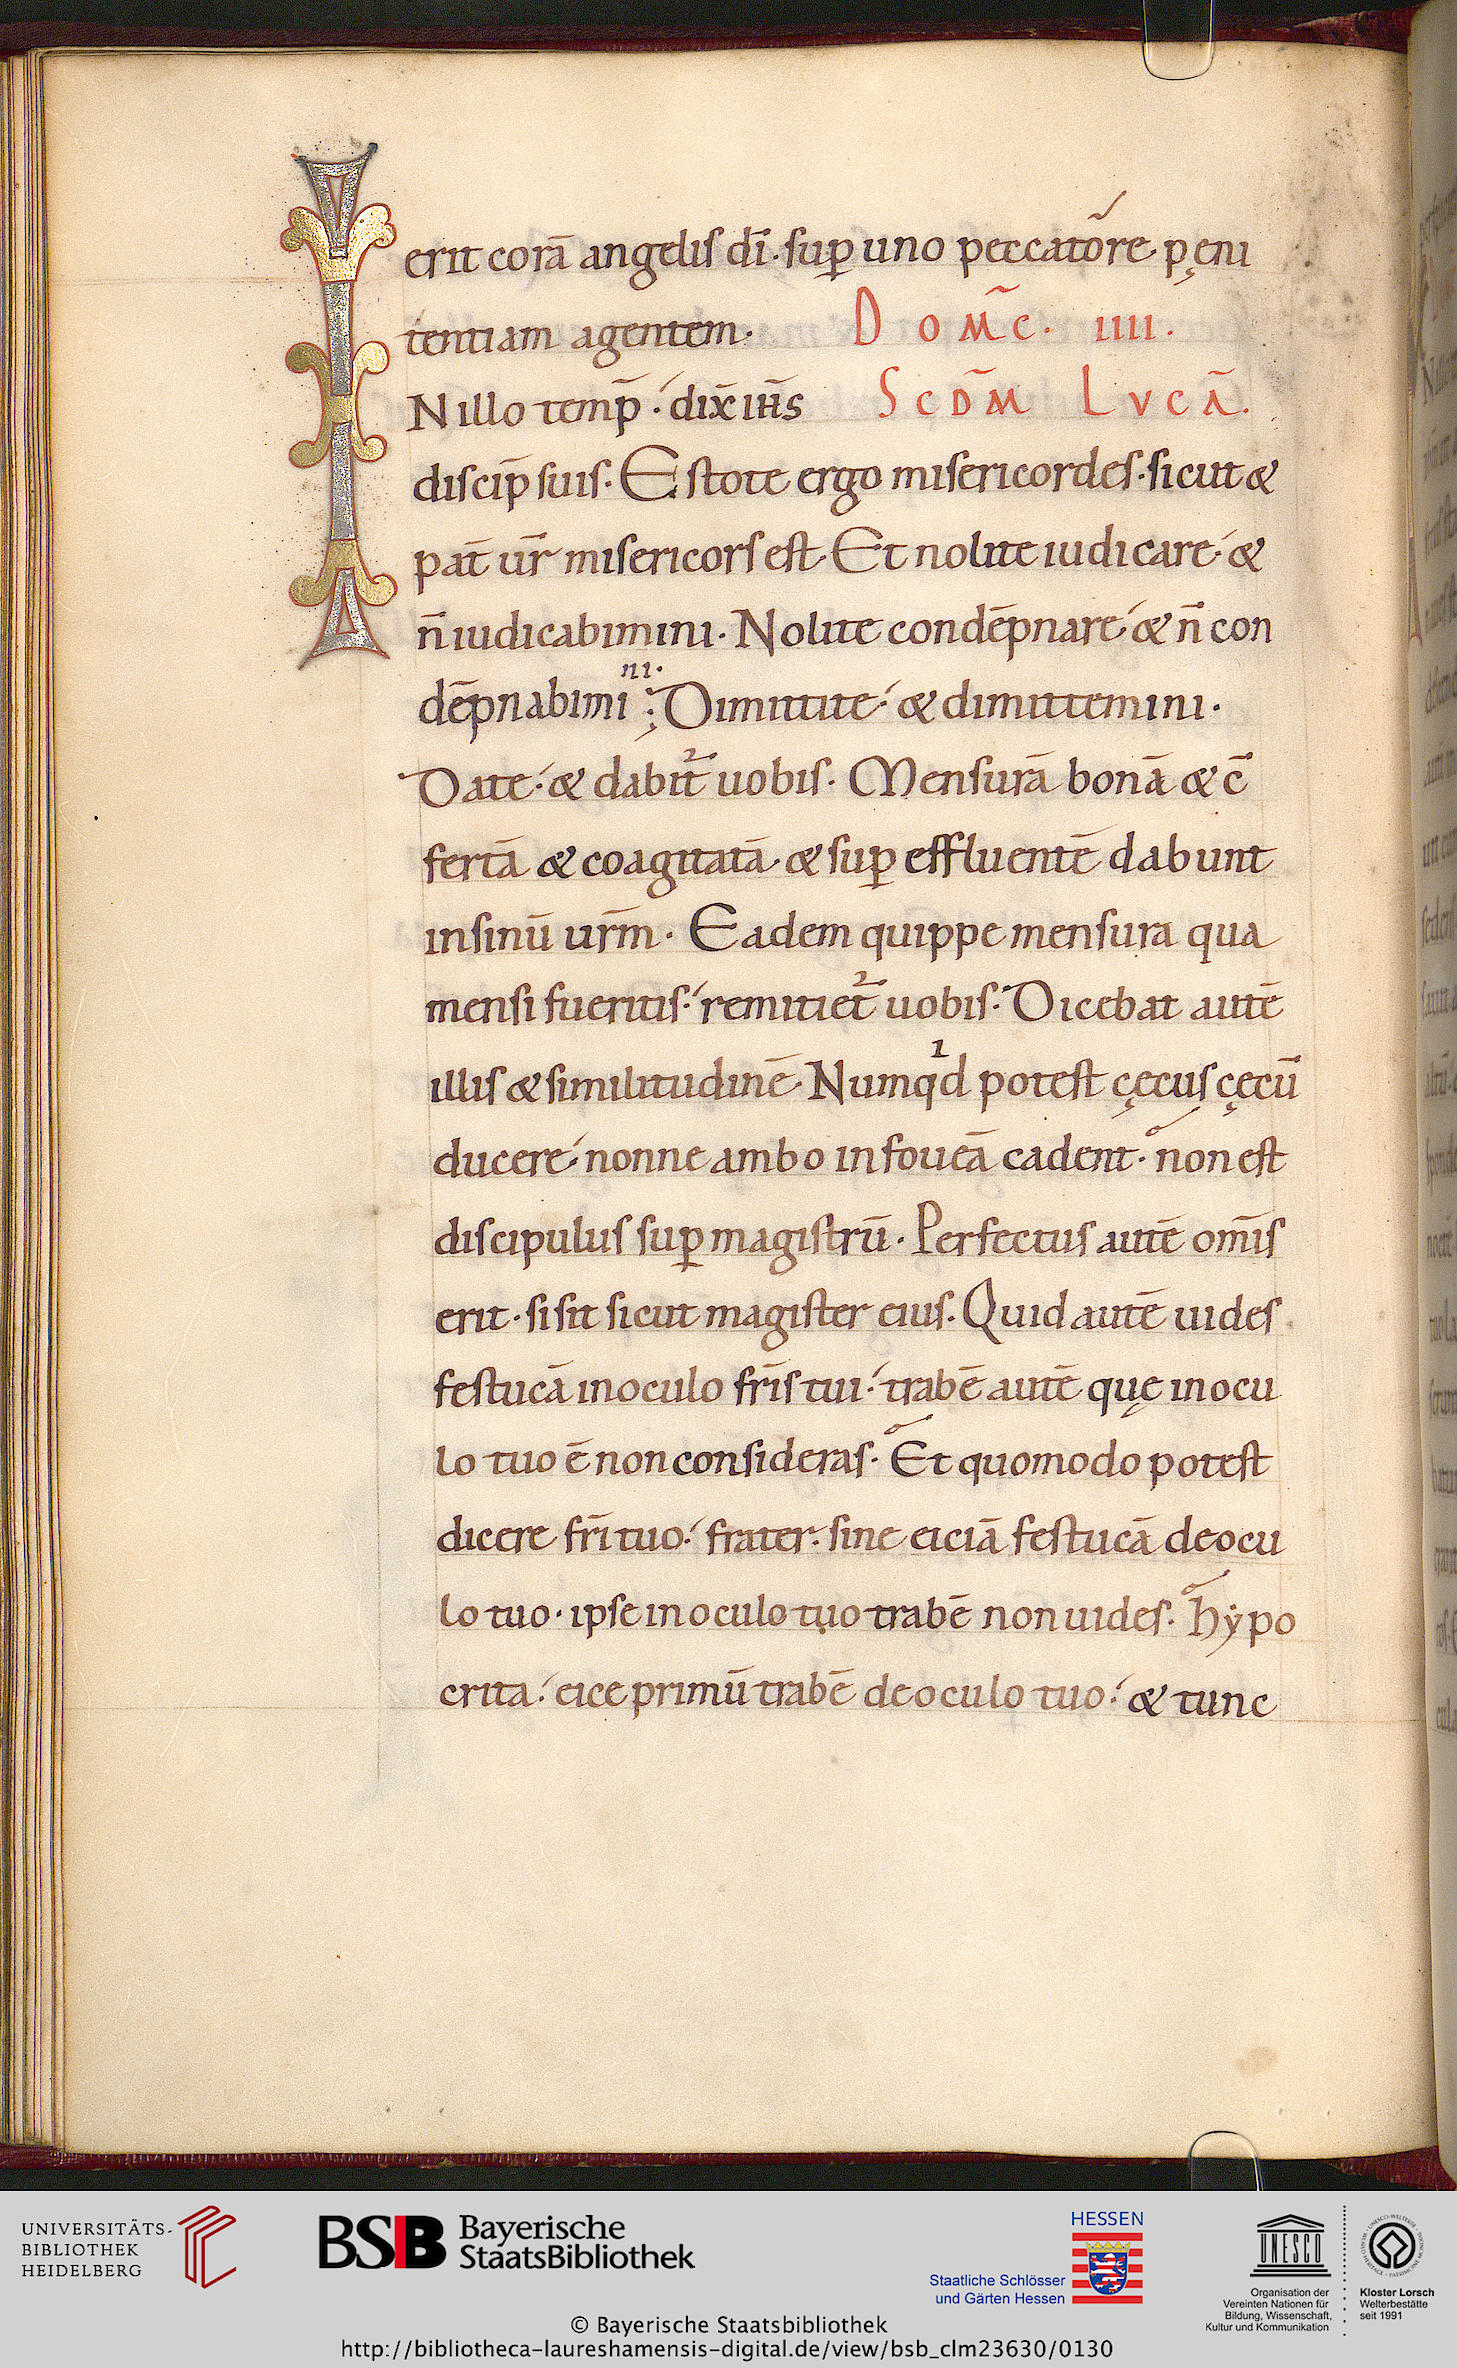 erit corā angelis dī. suꝑ uno peccatore pęni
tentiam agentem. DOM̄C. IIII.
IN illo temp̄. dix̄ ih̄s SCD̄M LVCĀ.
discip̄ suis. Estote ergo misericordes. sicut &
pat̄ ur̄ misericors est. Et nolite iudicare. &
n̄ iudicabimini. Nolite condēpnare & n̄ con
dēpnabimini; Dimittite. & dimittemini.
Date. & dabit̄ uobis. Mensurā bonā & c̄
fertā & coagitatā. & suꝑ effluentē dabunt
in sinū ur̄m. Eadem quippe mensura qua
mensi fueritis. remitiet̄ uobis. Dicebat autē
illis & similitudinē. Numqid potest cęcus cęcū
ducere. nonne ambo in foueā cadent. non est
discipulus suꝑ magistrū. Perfectus autē om̄is
erit. si sit sicut magister eius. Quid autē uides
festucā in oculo fr̄is tui. trabē autē quę in ocu
lo tuo ē non consideras. Et quomodo potest
dicere fr̄i tuo. frater. sine eiciā festucā de ocu
lo tuo. ipse in oculo tuo trabē non uides. hẏpo
crita. eice primū trabē de oculo tuo. & tunc
UNIVERSITÄTS-
BIBLIOTHEK
HEIDELBERG
BSB Bayerische
StaatsBibliothek
HESSEN
Staatliche Schlösser
und Gärten Hessen
UNESCO
Organisation der
Vereinten Nationen für
Bildung, Wissenschaft,
Kultur und Kommunikation
Kloster Lorsch
Welterbestätte
seit 1991
© Bayerische Staatsbibliothek
http://bibliotheca-laureshamensis-digital.de/view/bsb_clm23630/0130